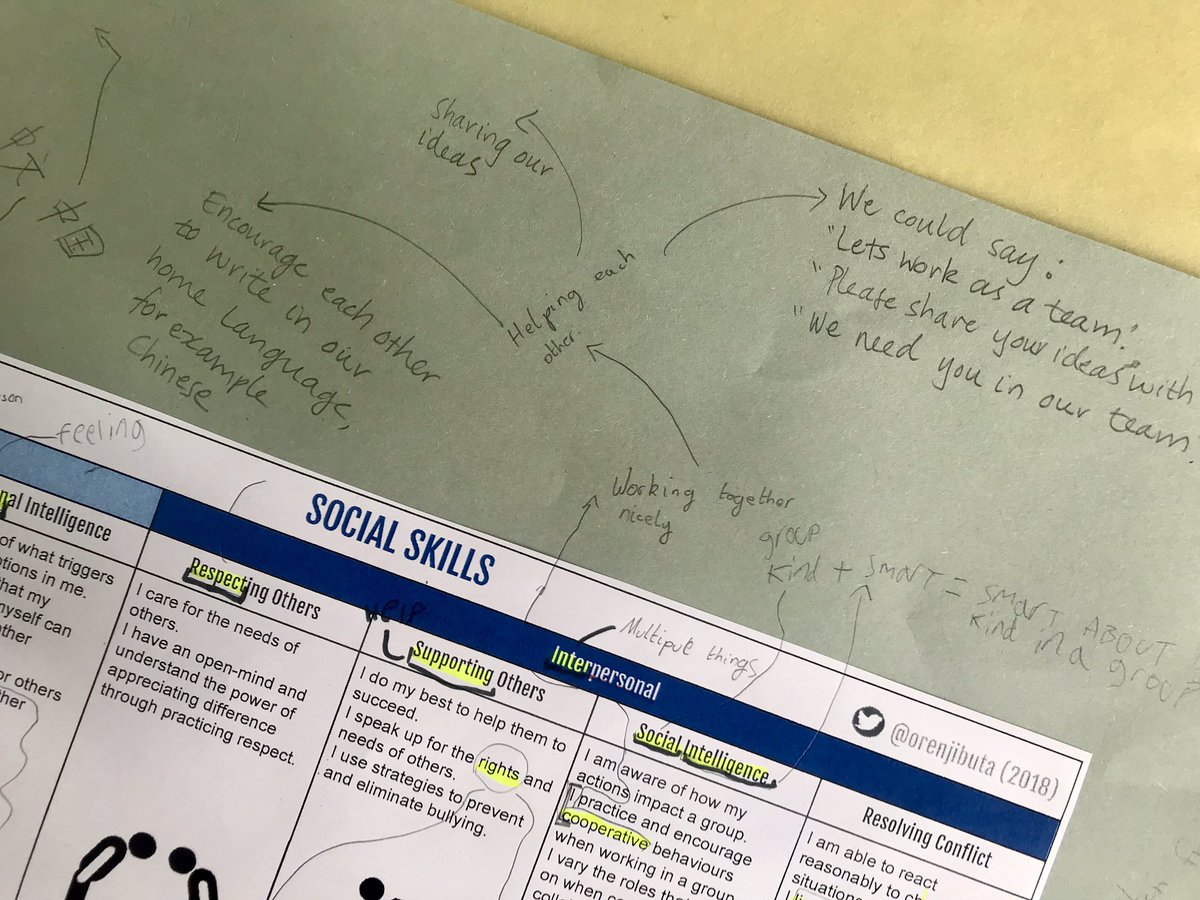 Sharing our
ideas
Encourage each other
to write in our
home language,
for example
Chinese
Helping each
other.
We could say:
"Lets work as a team".
"Please share your ideas with
"We need you in our team.
Working together
nicely
group
kind + smart = smart ABOUT
kind in a group
feeling
SOCIAL SKILLS
@orenjibuta (2018)
Interpersonal
Multiput things
nal Intelligence
of what triggers
otions in me.
hat my
myself can
ther
or others
ther
Respecting Others
I care for the needs of
others.
I have an open-mind and
understand the power of
appreciating difference
through practicing respect.
Help
Supporting Others
I do my best to help them to
succeed.
I speak up for the rights and
needs of others.
I use strategies to prevent
and eliminate bullying.
Social Intelligence
I am aware of how my
actions impact a group.
I practice and encourage
cooperative behaviours
when working in a group
I vary the roles tha
on when co
Resolving Conflict
I am able to react
reasonably to ch
situations